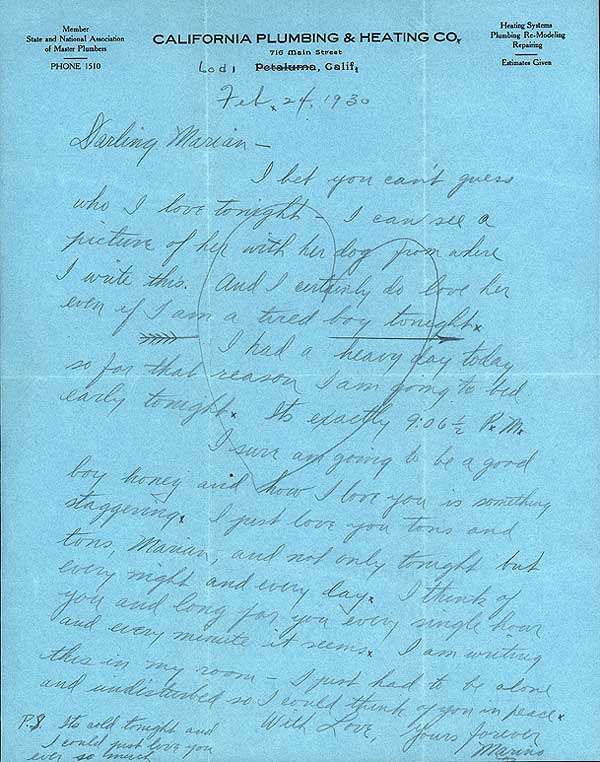 Member
State and National Association
of Master Plumbers
PHONE 1510
CALIFORNIA PLUMBING & HEATING CO.
716 Main Street
Lodi Petaluma, Calif.
Heating Systems
Plumbing Re-Modeling
Repairing
Estimates Given
Feb. 24, 1930
Darling Marian —
I bet you can't guess
who I love tonight — I can see a
picture of her with her dog from where
I write this. And I certainly do love her
even if I am a tired boy tonight.
I had a heavy day today
so for that reason I am going to bed
early tonight. Its exactly 9:06 ½ P.M.
I sure am going to be a good
boy honey and how I love you is something
staggering. I just love you tons and
tons, Marian, and not only tonight but
every night and every day. I think of
you and long for you every single hour
and every minute it seems. I am writing
this in my room — I just had to be alone
and undisturbed so I could think of you in peace.
With Love, Yours forever
Marino
P.S. Its cold tonight and
I could just love you
ever so much